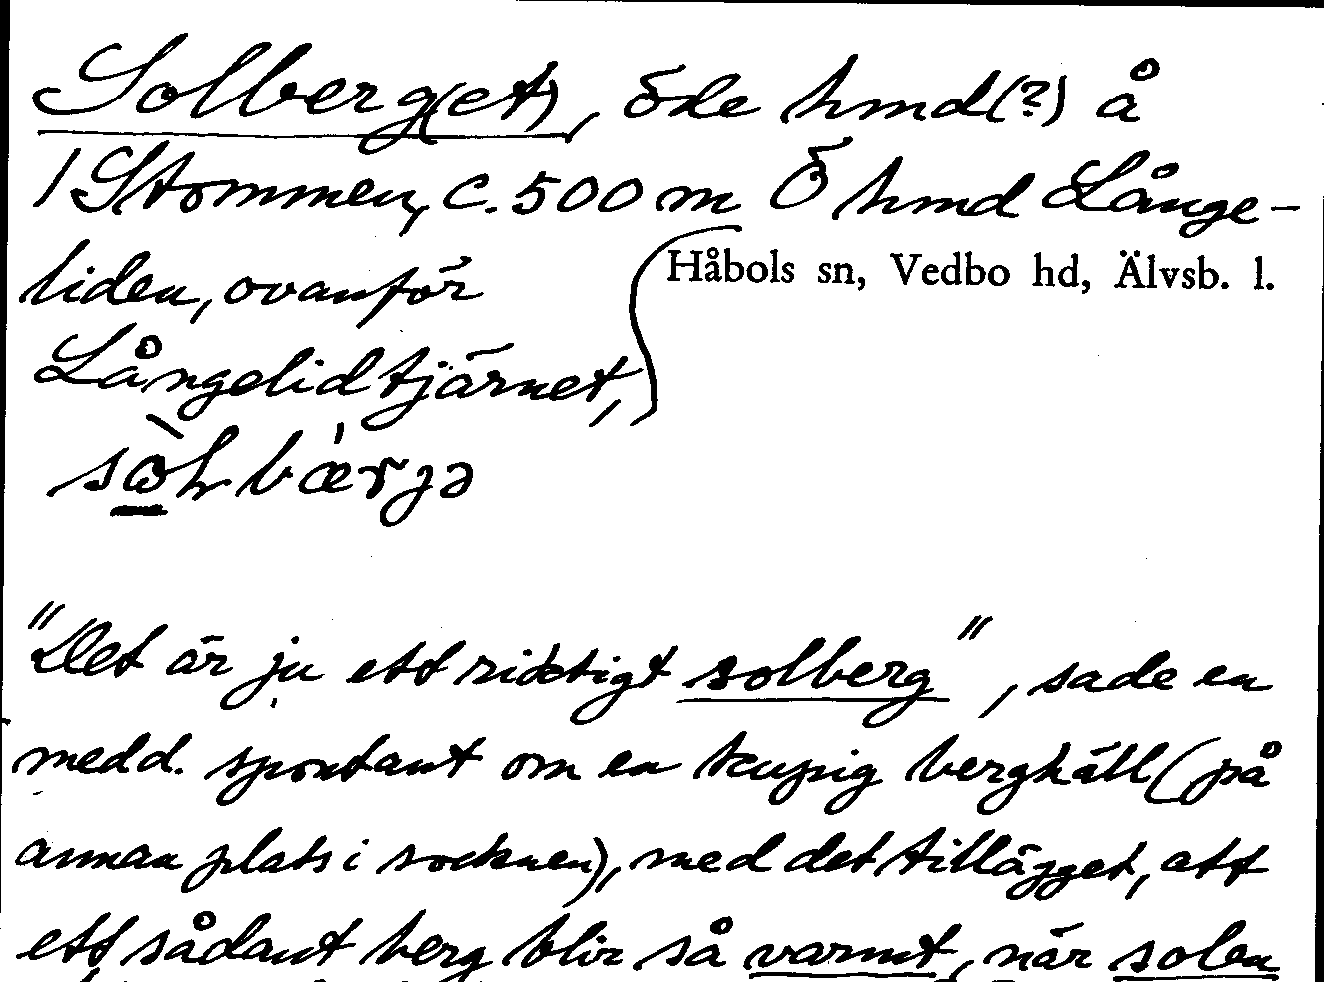 Solberg(et), öde hmd(?) å
1 Stommen, c. 500 m Ö hmd Långe-
liden, ovanför
Håbols sn, Vedbo hd, Älvsb. l.
Långelidtjärnet,
"Det är ju ett riktigt solberg", sade en
medd. spontant om en kupig berghäll (på
annan plats i socknen), med det tillägget, att
ett sådant berg blir så varmt, när solen